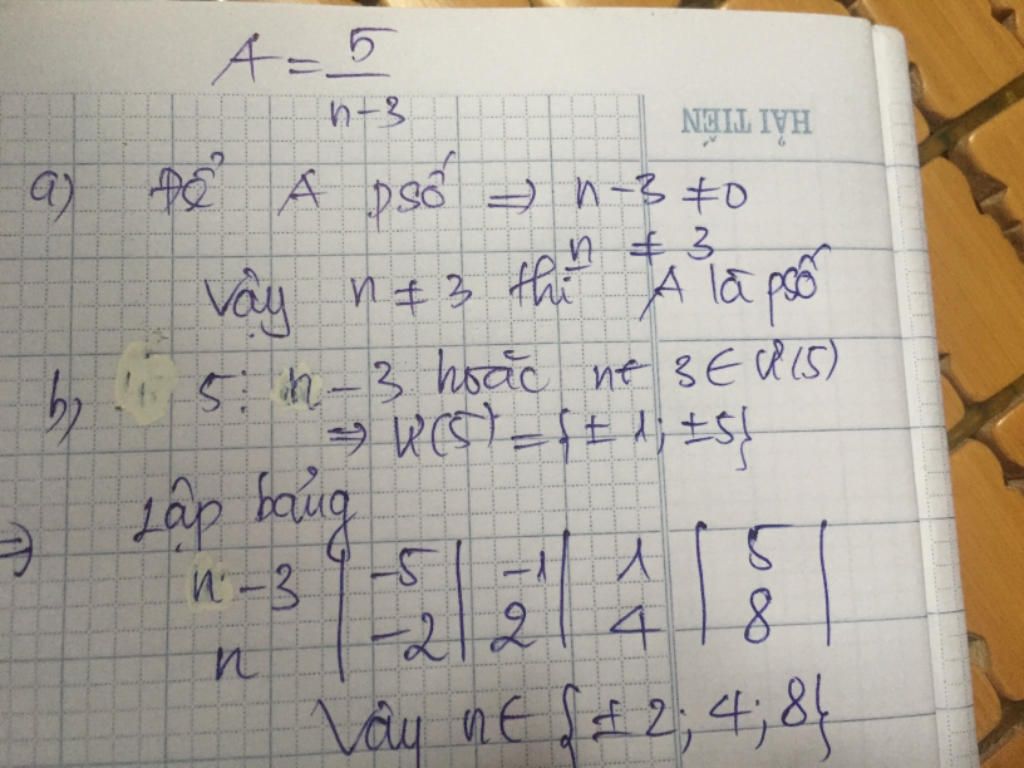 A = 5/(n-3)
HẢI TIẾN
a) Để A psố ⇒ n-3 ≠ 0
n ≠ 3
Vậy n ≠ 3 thì A là psố
b, 5 ⋮ n-3 hoặc n- 3 ∈ Ư(5)
⇒ Ư(5) = {±1; ±5}
⇒ Lập bảng
n-3 | -5 | -1 | 1 | 5 |
n | -2 | 2 | 4 | 8 |
Vậy n∈ {±2; 4; 8}